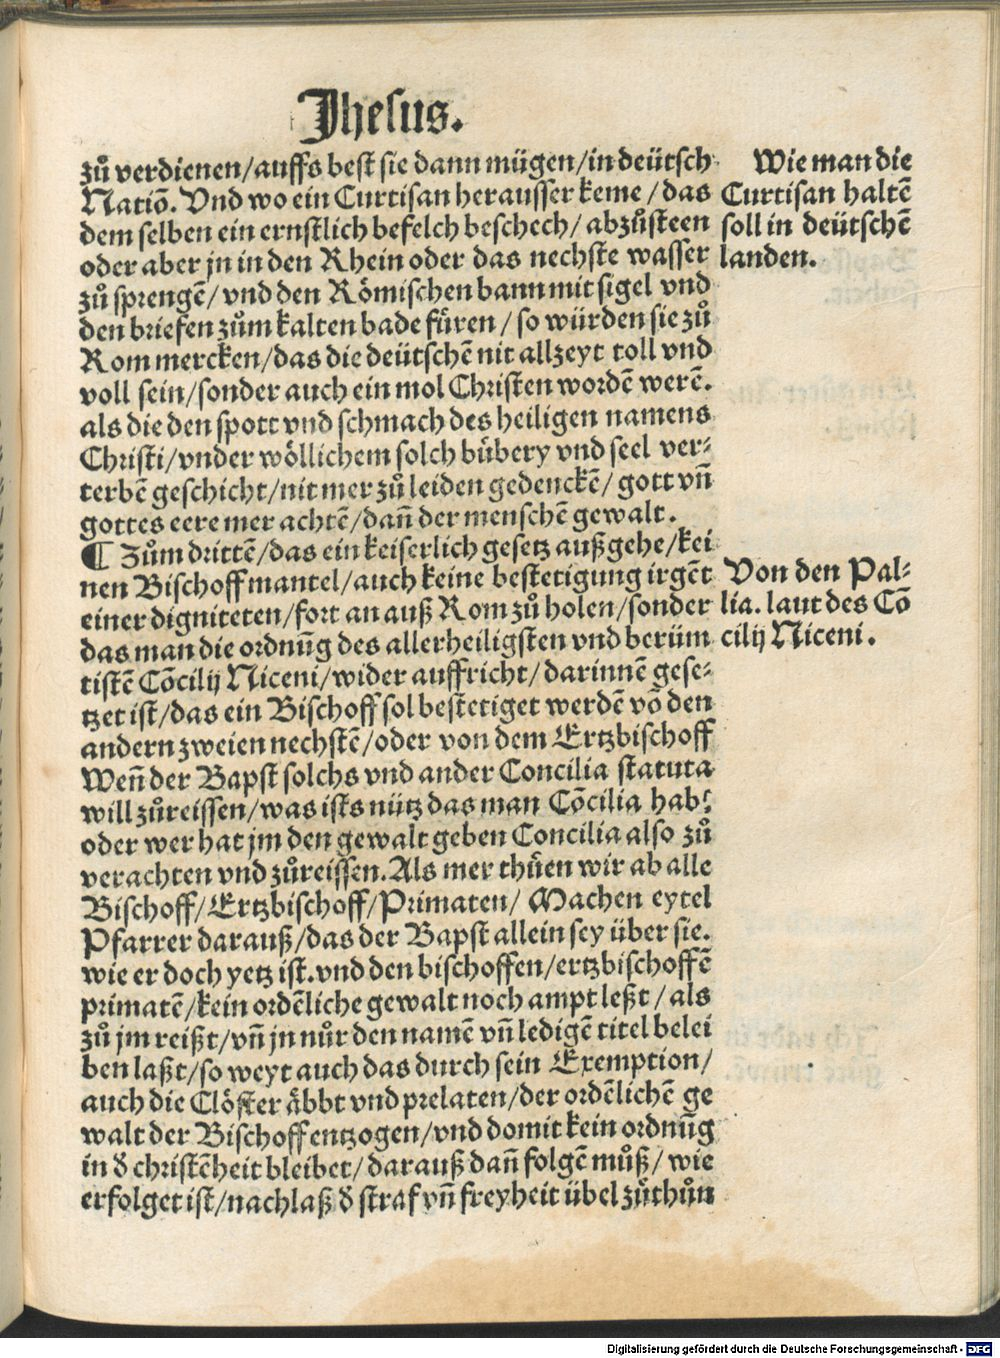 Jhesus.
zů verdienen/auffs best sie dann mügen/in deütsch
Natiō. Vnd wo ein Curtisan herausser keme/das
dem selben ein ernstlich befelch beschech/abzůsteen
oder aber jn in den Rhein oder das nechste wasser
zů sprengē/vnd den Römischen bann mit sigel vnd
den briefen zům kalten bade fůren/so würden sie zů
Rom mercken/das die deütschē nit allzeyt toll vnd
voll sein/sonder auch ein mol Christen wordē werē.
als die den spott vnd schmach des heiligen namens
Christi/vnder wöllichem solch bůbery vnd seel ver⸗
terbē geschicht/nit mer zů leiden gedenckē/gott vn̄
gottes eere mer achtē/dan̄ der menschē gewalt.
¶ Zům drittē/das ein keiserlich gesetz außgehe/kei
nen Bischoff mantel/auch keine bestetigung irgēt
einer digniteten/fort an auß Rom zů holen/sonder
das man die ordnūg des allerheiligsten vnd berüm
tistē Cōcilij Niceni/wider auffricht/darinnē gese⸗
tzet ist/das ein Bischoff sol bestetiget werdē vō den
andern zweien nechstē/oder von dem Ertzbischoff
Wen̄ der Bapst solchs vnd ander Concilia statuta
will zůreissen/was ists nütz das man Cōcilia hab?
oder wer hat jm den gewalt geben Concilia also zů
verachten vnd zůreissen. Als mer thůen wir ab alle
Bischoff/Ertzbischoff/Primaten/Machen eytel
Pfarrer darauß/das der Bapst allein sey über sie.
wie er doch yetz ist. vnd den bischoffen/ertzbischoffē
primatē/kein ordēliche gewalt noch ampt leßt/als
zů jm reißt/vn̄ jn nůr den namē vn̄ ledigē titel belei
ben laßt/so weyt auch das durch sein Exemption/
auch die Clöster åbbt vnd prelaten/der ordēlichē ge
walt der Bischoff entzogen/vnd domit kein ordnūg
in d̓ christēheit bleibet/darauß dan̄ folgē můß/wie
erfolget ist/nachlaß d̓ straf vn̄ freyheit übel zůthůn
Wie man die
Curtisan haltē
soll in deütschē
landen.
Von den Pal⸗
lia. laut des Cō
cilij Niceni.
Digitalisierung gefördert durch die Deutsche Forschungsgemeinschaft - DFG